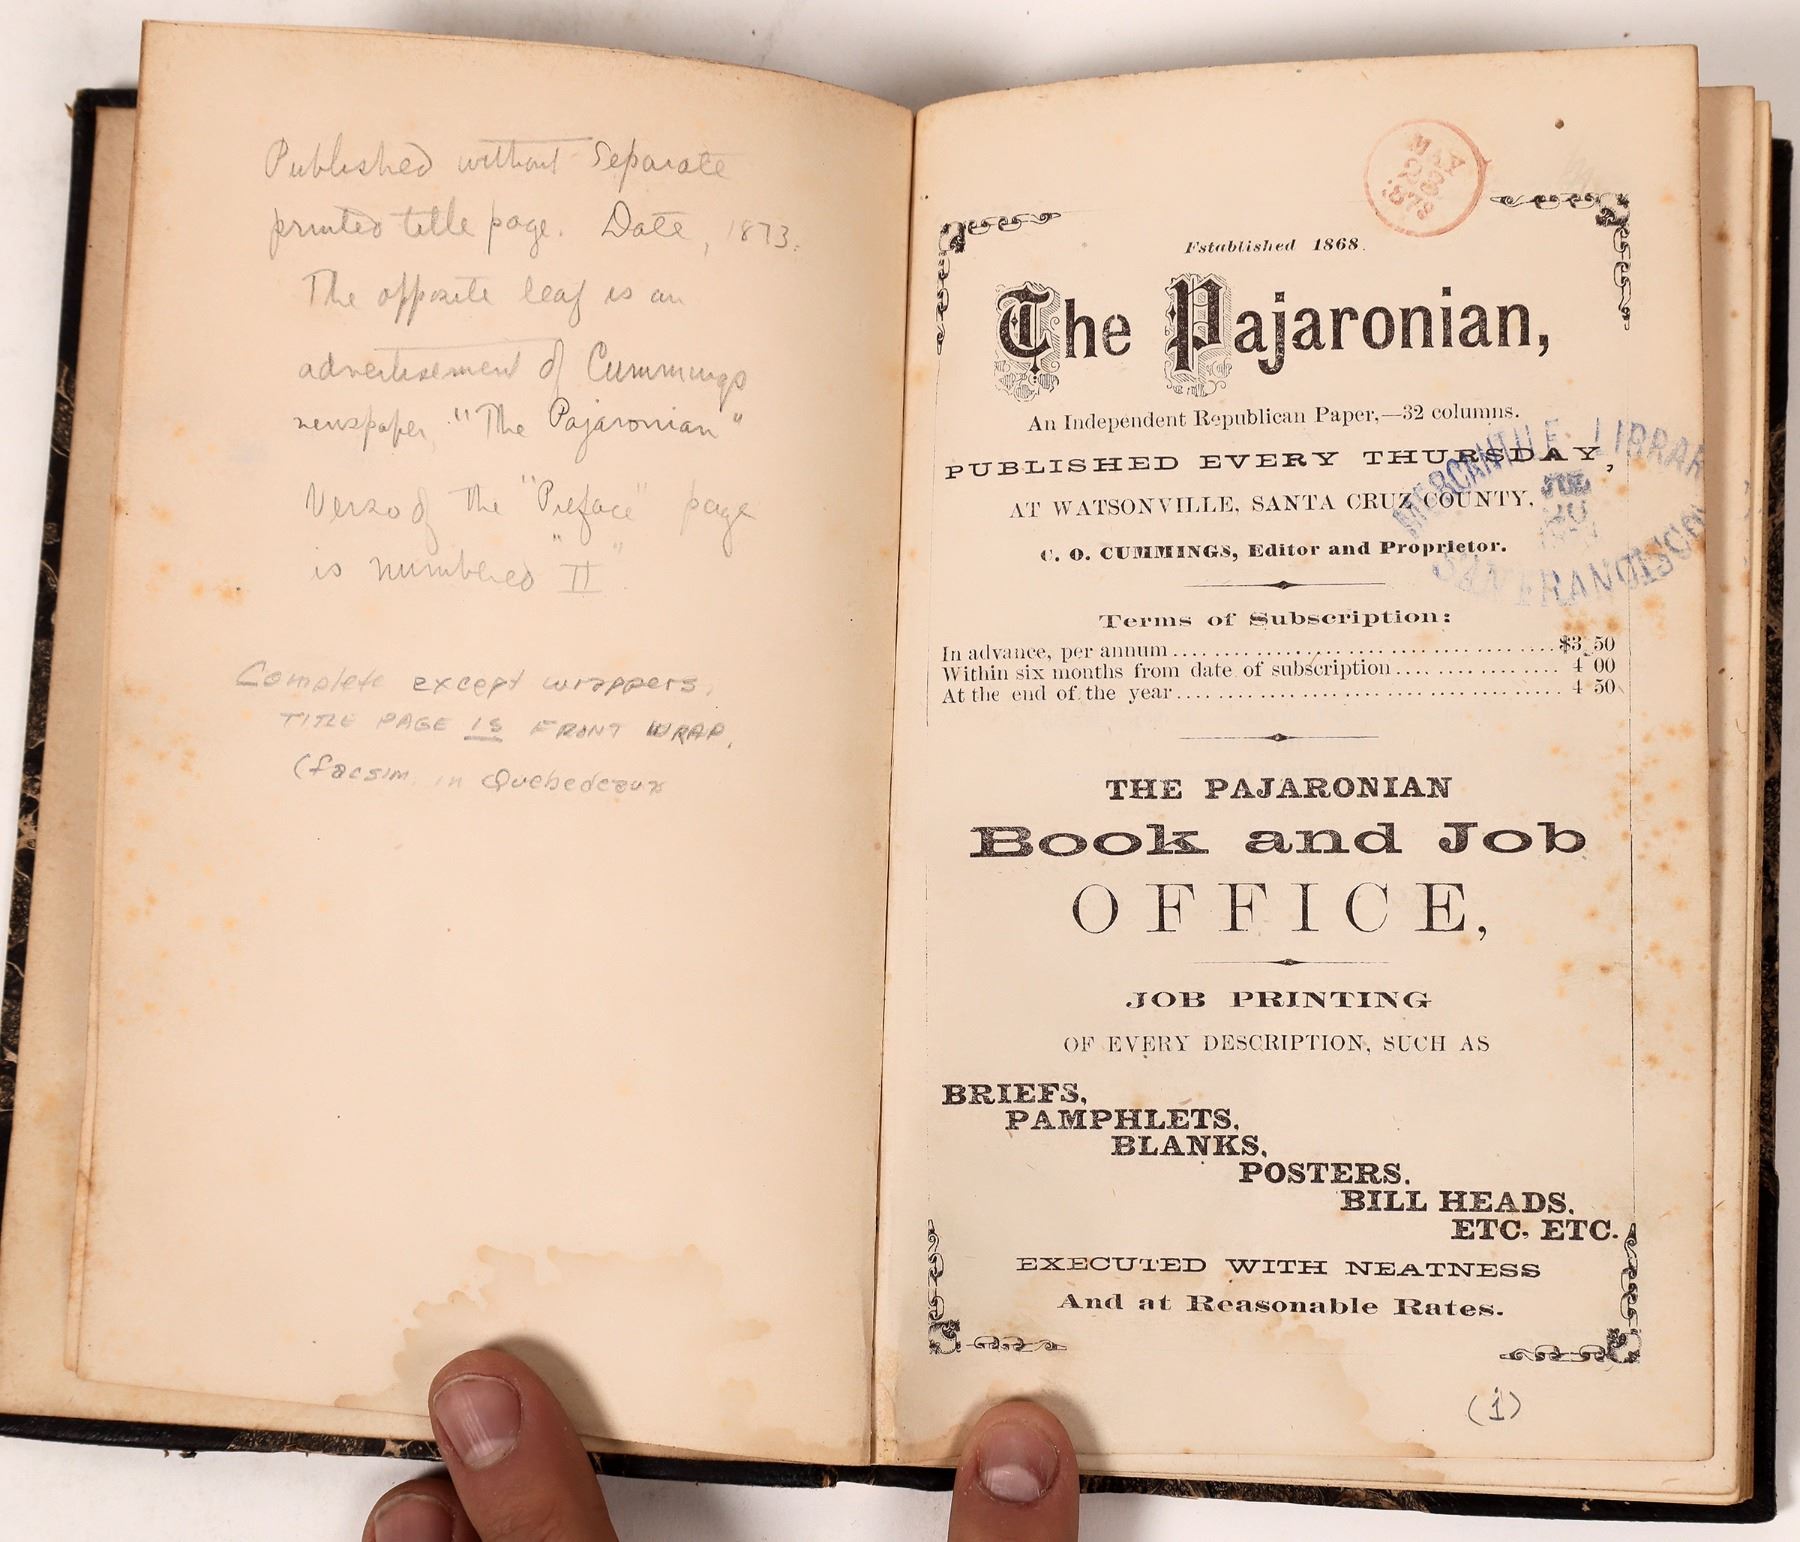 Published without Separate
printed title page. Date, 1873.
The opposite leaf is an
advertisement of Cummings
newspaper, "The Pajaronian"
Verso of the "Preface" page
is numbered "II"
Complete except wrappers.
TITLE PAGE IS FRONT WRAP.
(facsim. in Quebedeaux
Established 1868.
The Pajaronian,
An Independent Republican Paper,—32 columns.
PUBLISHED EVERY THURSDAY,
AT WATSONVILLE, SANTA CRUZ COUNTY,
C. O. CUMMINGS, Editor and Proprietor.
MERCANTILE LIBRAR
SAN FRANCISCO
Terms of Subscription:
In advance, per annum....................................$3 50
Within six months from date of subscription.............. 4 00
At the end of the year................................... 4 50
THE PAJARONIAN
Book and Job
OFFICE,
JOB PRINTING
OF EVERY DESCRIPTION, SUCH AS
BRIEFS,
PAMPHLETS,
BLANKS,
POSTERS,
BILL HEADS,
ETC, ETC.
EXECUTED WITH NEATNESS
And at Reasonable Rates.
(1)